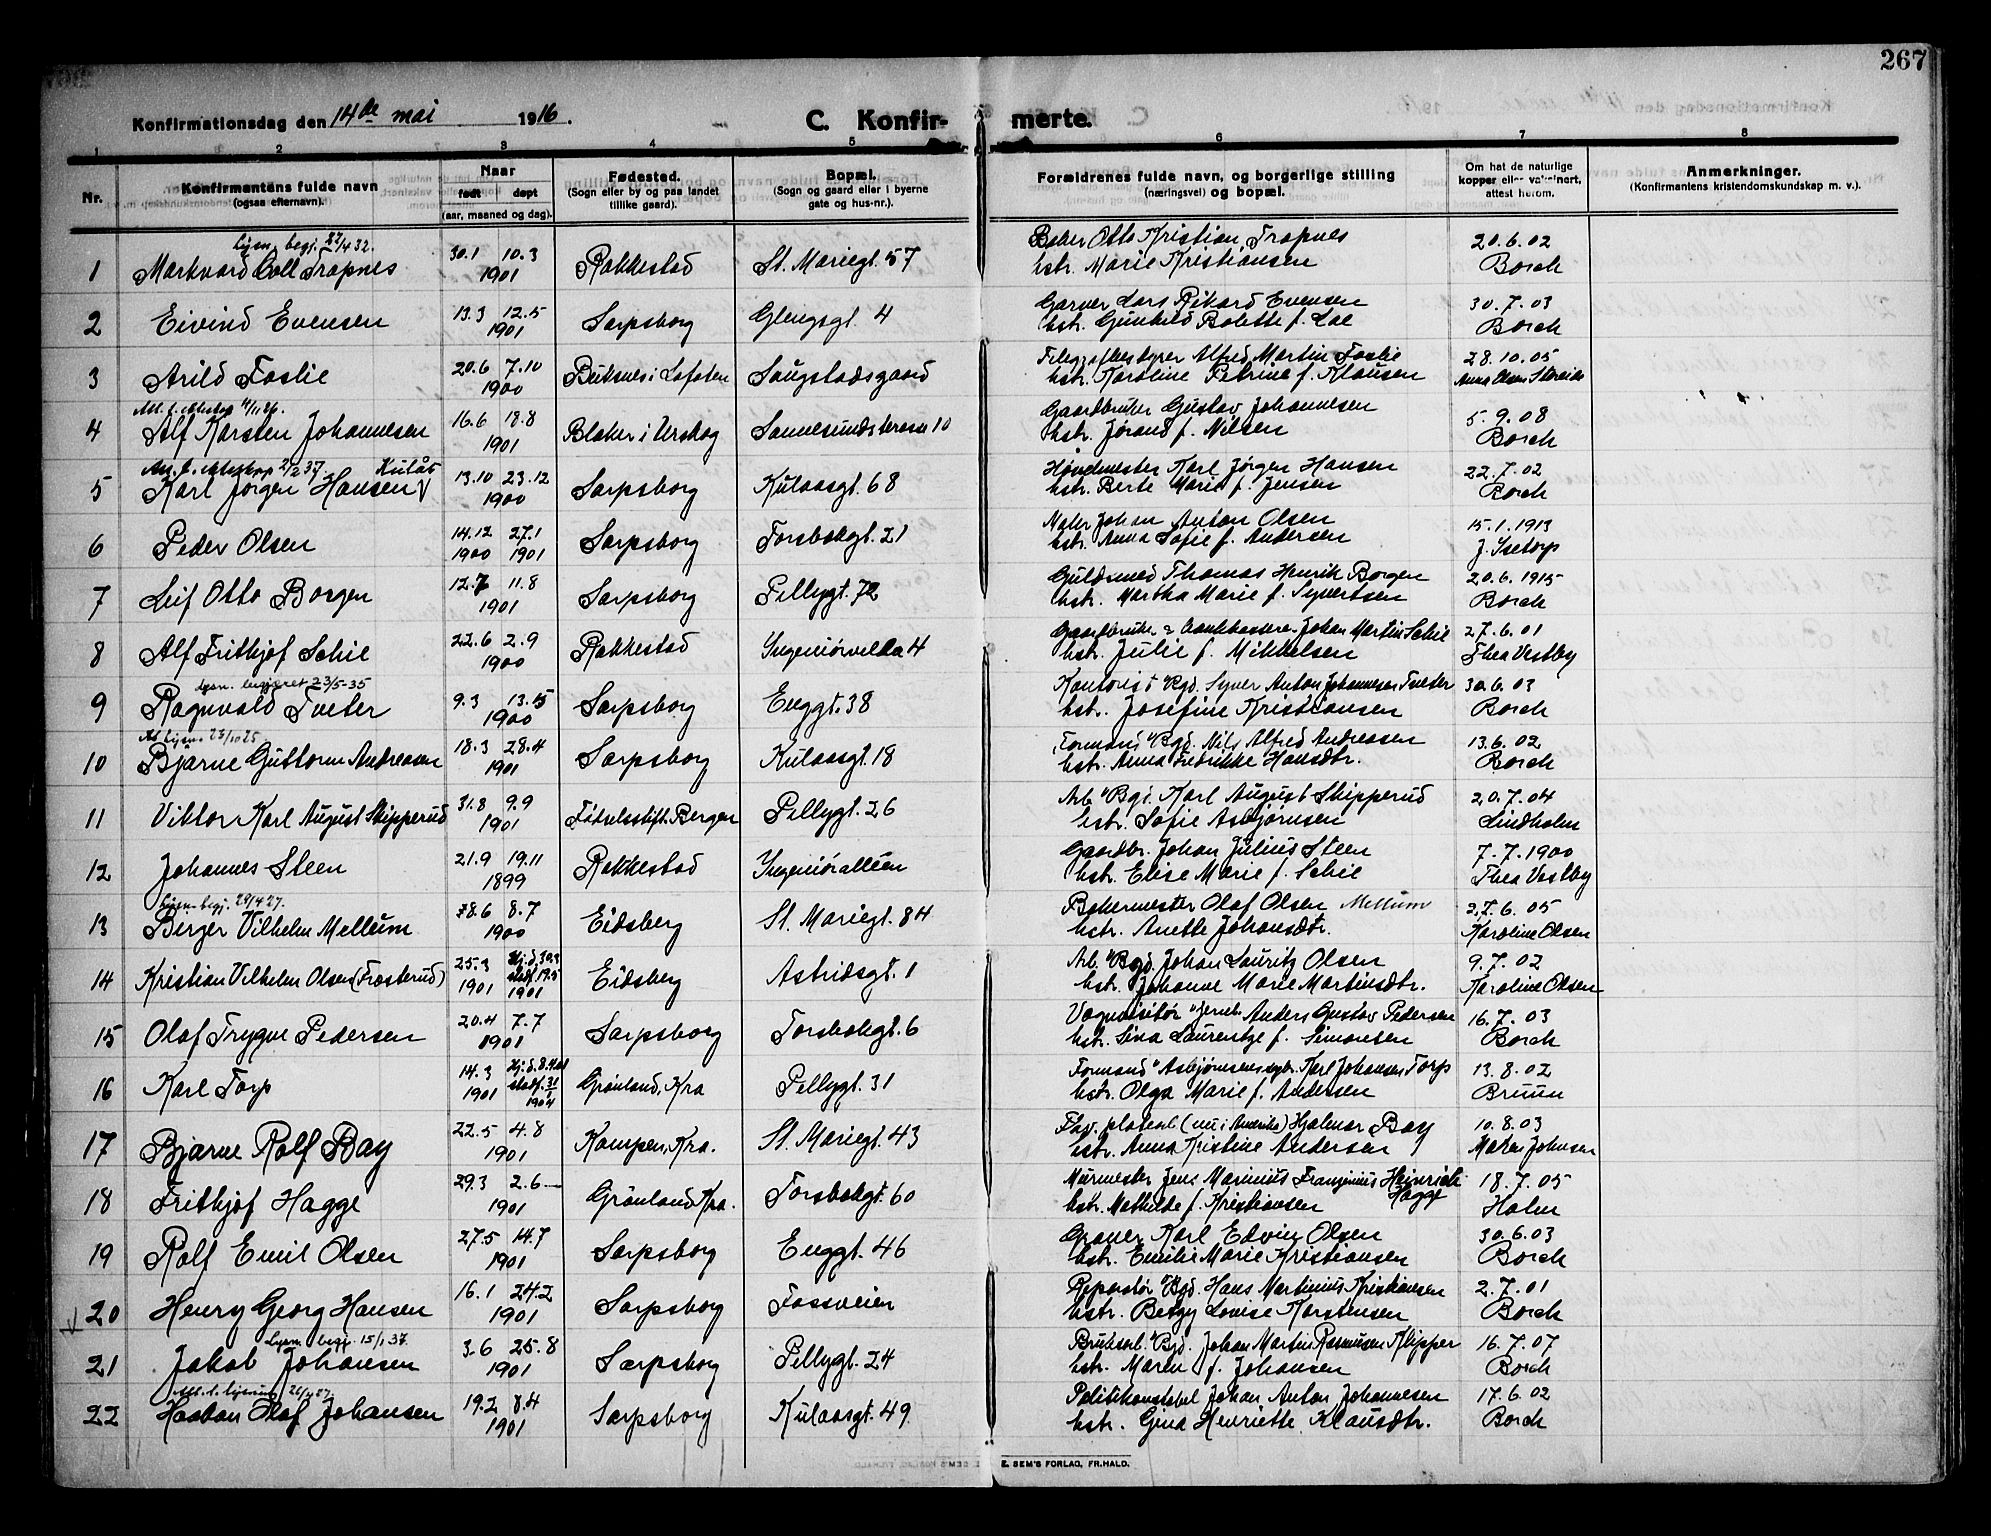 267
Konfirmationsdag den 14de mai 1916.
C. Konfirmerte.
1 2 3 4 5 6 7 8
Nr. Konfirmantens fulde navn (ogsaa efternavn). Naar født døpt (aar, maaned og dag). Fødested. (Sogn eller by og paa landet tillike gaard). Bopæl. (Sogn og gaard eller i byerne gate og hus-nr.). Forældrenes fulde navn, og borgerlige stilling (næringsvei) og bopæl. Om hat de naturlige kopper eller vaksinert, attest herom. Anmerkninger. (Konfirmantens kristendomskundskap m. v.).
lysn. begj. 27/4 32.
1 Markvard Coll Trapnes 30.1 10.3 1901 Rakkestad St. Mariegt. 57 Baker Otto Kristian Trapnes 20.6.02
hstr. Marie Kristiansen Borch
2 Eivind Evensen 13.3 12.5 1901 Sarpsborg Glengsgt. 4 Garver Lars Rikard Evensen 30.7.03
hstr. Gunhild Bolette f. Lae Borch
3 Arild Foslie 20.6 7.10 1900 Buksnes i Lofoten Saugstadsgaard Alfred Martin Foslie 28.10.05
hstr. Karoline Petrine f. Klausen Anna Olsen
Att. t. ekteskap 4/11 26.
4 Alf Karsten Johannesen 16.6 18.8 1901 Blaker i Urskog Sannesundsterasse 10 Gaardbruker Gustav Johannesen 5.9.08
hstr. Jørand f. Nilsen Borch
Att. t. ekteskap 2/2 37. Kulås
5 Karl Jørgen Hansen 13.10 23.12 1900 Sarpsborg Kulaasgt. 68 Høvelmester Karl Jørgen Hansen 22.7.02
hstr. Berte Marie f. Jensen Borch
6 Peder Olsen 14.12 1900 27.1 1901 Sarpsborg Torsbekgt. 21 Maler Johan Anton Olsen 15.1.1913
hstr. Anna Sofie f. Andersen J. Isetorp
7 Leif Otto Borgen 12.7 11.8 1901 Sarpsborg Pellygt. 72 Guldsmed Thomas Henrik Borgen 20.6.1915
hstr. Martha Marie f. Syvertsen Borch
8 Alf Frithjof Schie 22.6 2.9 1900 Rakkestad Ingeniørvilla 4 Gaardbruker & bankkasserer Johan Martin Schie 27.6.01
hstr. Julie f. Mikkelsen Thea Vestby
lysn. begjæret 23/5-35
9 Ragnvald Tveter 9.3 13.15 1900 Sarpsborg Enggt. 38 Kontorist v/Bgd. Syver Anton Johannesen Tveter 30.6.03
hstr. Josefine Kristiansen Borch
Att lysn. 23/10 25.
10 Bjarne Guttorm Andreasen 18.3 28.4 1901 Sarpsborg Kulaasgt. 18 Formand v/Bgd. Nils Alfred Andreasen 13.6.02
hstr. Anna Fredrikke Hansdtr. Borch
11 Viktor Karl August Skipperud 31.8 9.9 1901 Fødselsstift. Bergen Pellygt. 26 Arb. v/Bgd. Karl August Skipperud 20.7.04
hstr. Sofie Asbjørnsen Lindholm
12 Johannes Steen 21.9 19.11 1899 Rakkestad Ingeniøralleen Gaardbr. Johan Julius Steen 7.7.1900
hstr. Elise Marie f. Schie Thea Vestby
Lysn. begj. 29/4 27.
13 Birger Vilhelm Mellum 28.6 8.7 1900 Eidsberg St. Mariegt. 84 Bakermester Olaf Olsen Mellum 27.6.05
hstr. Anette Johansdtr. Karoline Olsen
14 Kristian Vilhelm Olsen (Frøsterud) 25.3 1901 Hj.d. 30.3 stadf. 19.5 1901 Eidsberg Astridsgt. 1 Arb. v/Bgd. Johan Lauritz Olsen 9.7.02
hstr. Johanne Marie Martinsdtr. Karoline Olsen
15 Olaf Trygve Pedersen 20.4 7.7 1901 Sarpsborg Torsbekgt. 6 Vognvisitør v/Jernb. Anders Gustav Pedersen 16.7.03
hstr. Lina Laurentze f. Simonsen Borch
16 Karl Torp 14.3 1901 Hj.d. 8.4.01 stadf. 31/1 1904 Grønland, Kra Pellygt. 31 Formand v/Asbjørnsens Karl Johansen Torp 13.8.02
hstr. Olga Marie f. Andersen Bruun
17 Bjarne Rolf Bay 22.5 4.8 1901 Kampen, Kra. St. Mariegt. 43 (nu i Amerika) Hjalmar Bay 10.8.03
hstr. Anna Kristine Andersen Maren Johnsen
18 Frithjof Hagge 29.3 2.6 1901 Grønland, Kra. Torsbekgt. 60 Murmester Jens Marinius Fransinius Heinrich Hagge 18.7.05
hstr. Mathilde f. Kristiansen Holm
19 Rolf Emil Olsen 27.5 14.7 1901 Sarpsborg Enggt. 46 Graver Karl Edvin Olsen 30.6.03
hstr. Emilie Marie Kristiansen Borch
20 Henry Georg Hansen 16.1 24.2 1901 Sarpsborg Fossveien Reparatør v/Bgd. Hans Martinius Kristiansen 2.7.01
hstr. Betzy Lovise Karstensen Borch
Lysn. begj. 15/1 37.
21 Jakob Johansen 3.6 25.8 1901 Sarpsborg Pellygt. 24 Bruksarb. v/Bgd. Johan Martin Rasmusen Klipper 16.7.07
hstr. Maren f. Johansen Borch
Att. t. lysning
22 Haakon Olaf Johansen 19.2 8.4 1901 Sarpsborg Kulaasgt. 49 Politikonstabel Johan Anton Johannesen 17.6.02
hstr. Gina Henriette Klausdtr. Borch
E. SEM'S FORLAG, FR.HALD.